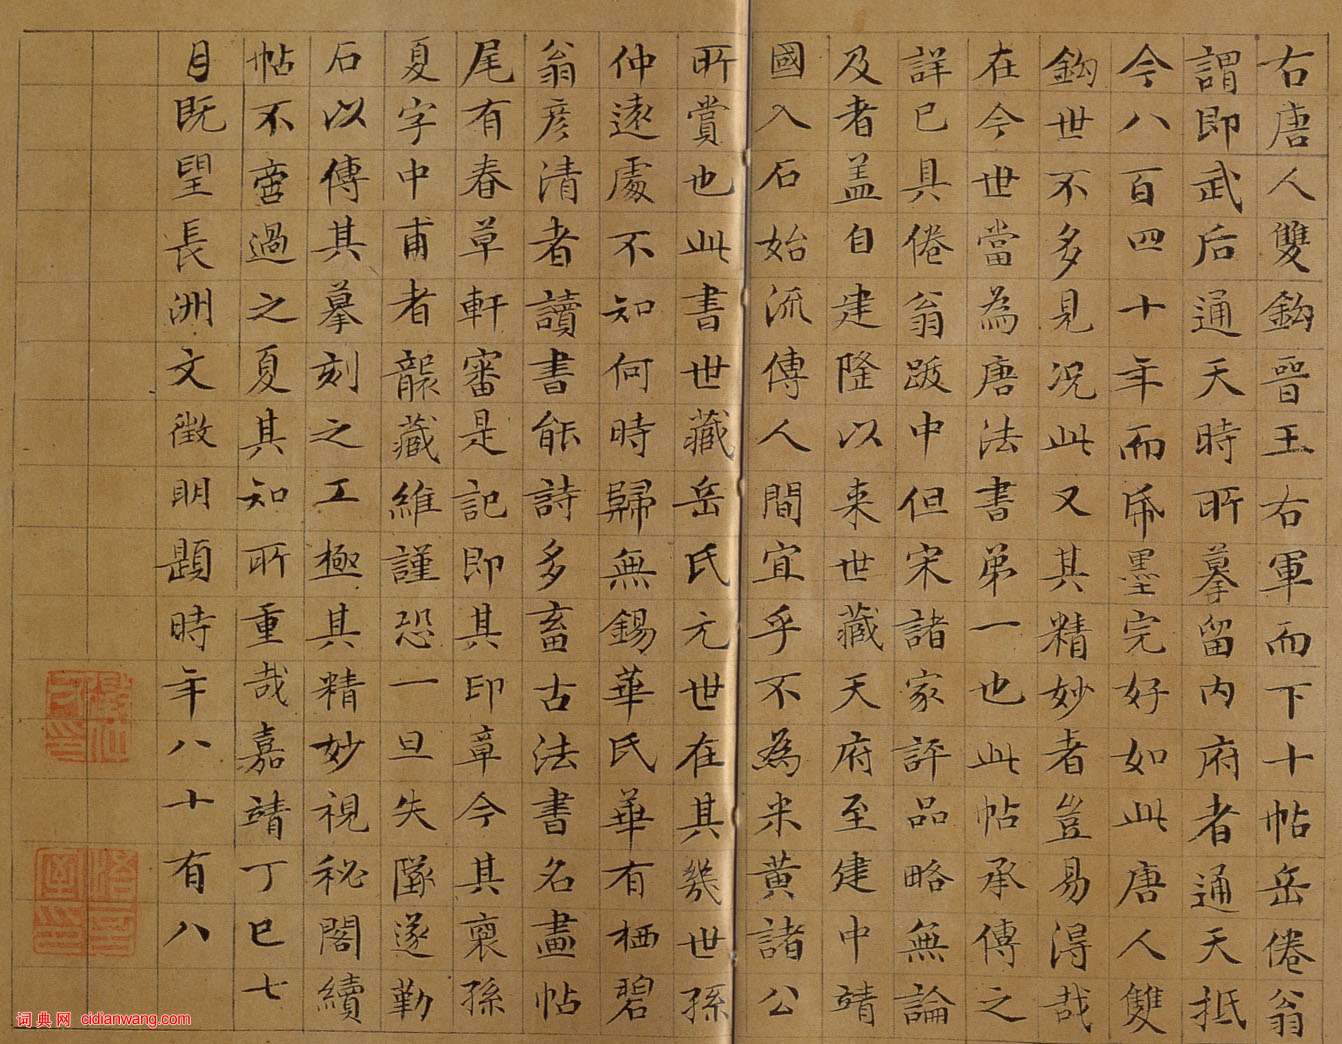 右唐人雙鈎晉王右軍而下十帖岳倦翁
謂即武后通天時所摹留内府者通天抵
今八百四十年而紙墨完好如此唐人雙
鈎世不多見况此又其精妙者豈易得哉
在今世當為唐法書第一也此帖承傳之
詳已具倦翁跋中但宋諸家評品略無論
及者盖自建隆以来世藏天府至建中靖
國入石始流傳人間宜乎不為米黄諸公
所賞也此書世藏岳氏元世在其幾世孫
仲遠處不知何時歸無錫華氏華有栖碧
翁彦清者讀書能詩多畜古法書名畫帖
尾有春草軒審是記即其印章今其裔孫
夏字中甫者襲藏維謹恐一旦失墜遂勤
石以傳其摹刻之工極其精妙視秘閣續
帖不啻過之夏其知所重哉嘉靖丁巳七
月既望長洲文徴明題時年八十有八
词典网 cidianwang.com